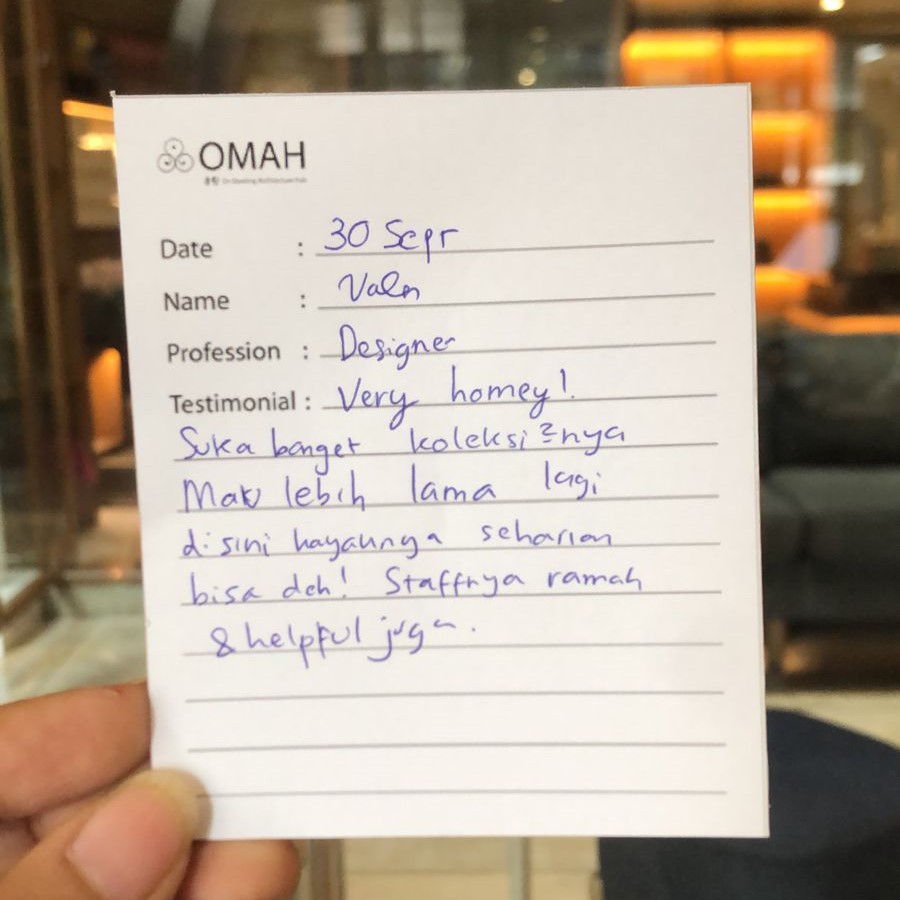 OMAH
Date : 30 Sept
Name :
Profession : Designer
Testimonial : Very homey!
Suka banget koleksi2nya
Mau lebih lama lagi
disini kayaknya seharian
bisa deh! Staffnya ramah
& helpful juga.